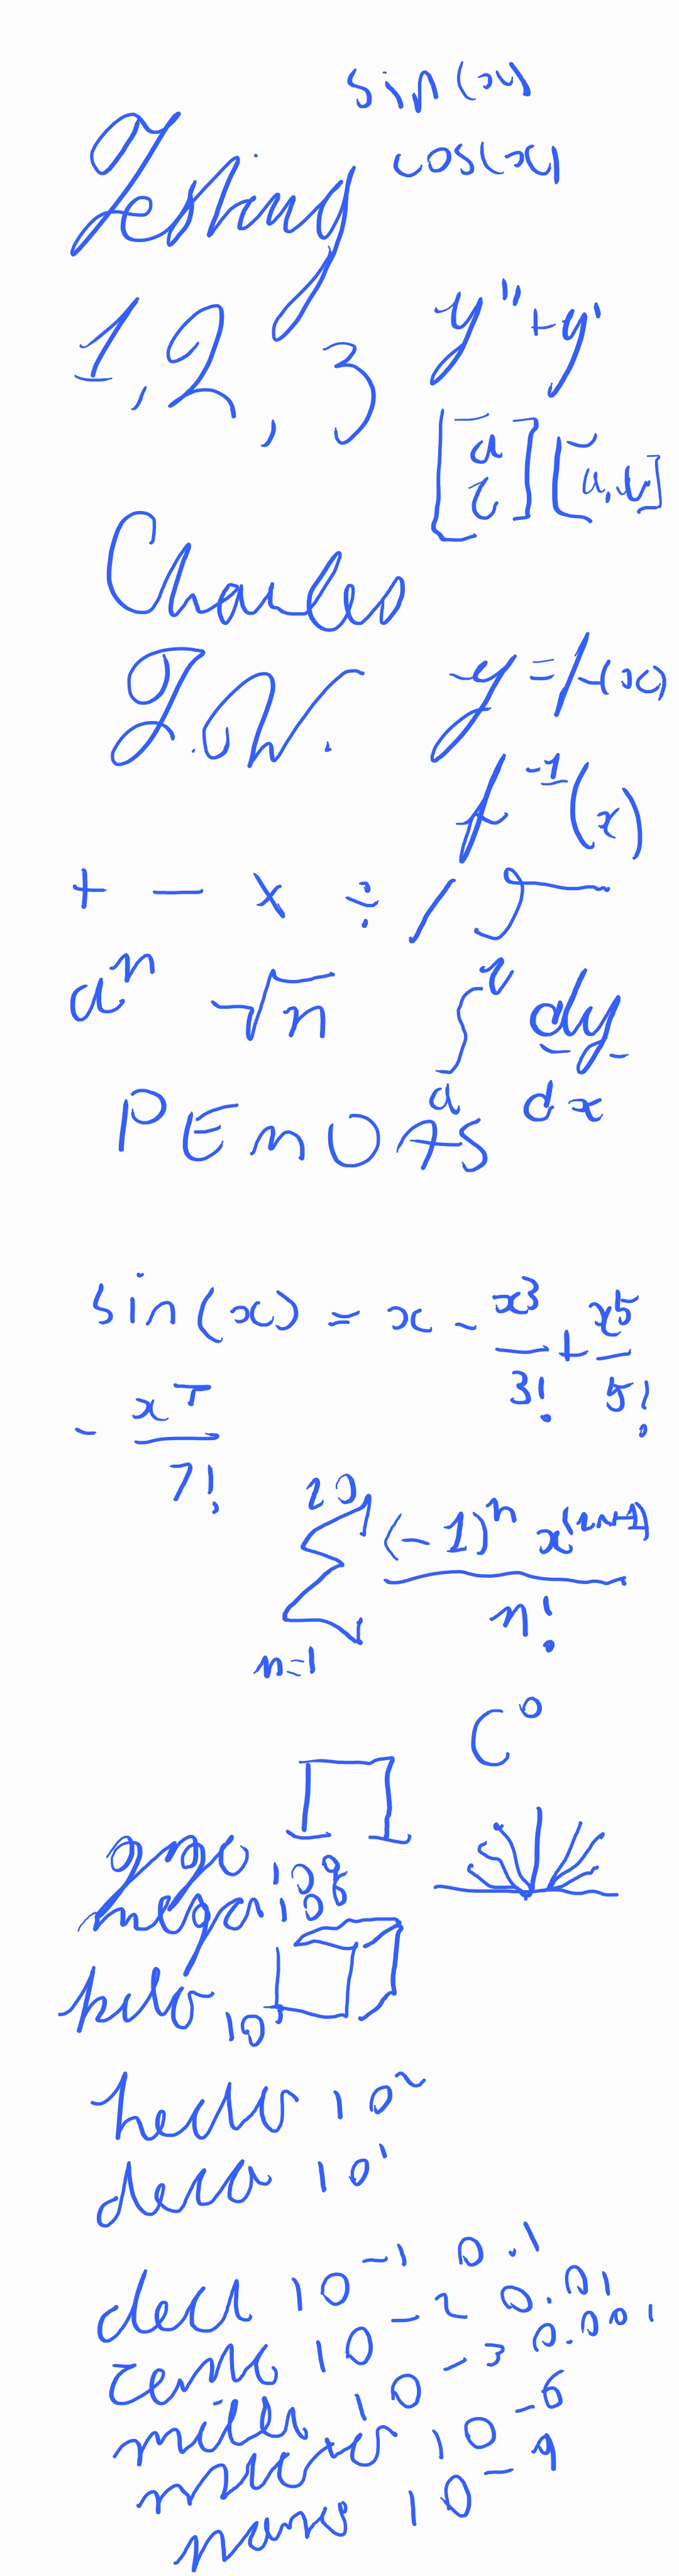 sin(x)
cos(x)
Testing
1, 2, 3
y" + y'
[a, b]
Charles
J.W.
y = f(x)
f⁻¹(x)
+ − × ÷ /
aⁿ √n
dy
a
dx
PEMDAS
sin(x) = x - x³/3! + x⁵/5!
- x⁷/7!
20
∑ (-1)ⁿ x⁽²ⁿ⁺¹⁾ / n!
n=1
C°
giga 10⁹
mega 10⁶
kilo 10³
hecto 10²
deca 10¹
deci 10⁻¹ 0.1
centi 10⁻² 0.01
milli 10⁻³ 0.001
micro 10⁻⁶
nano 10⁻⁹